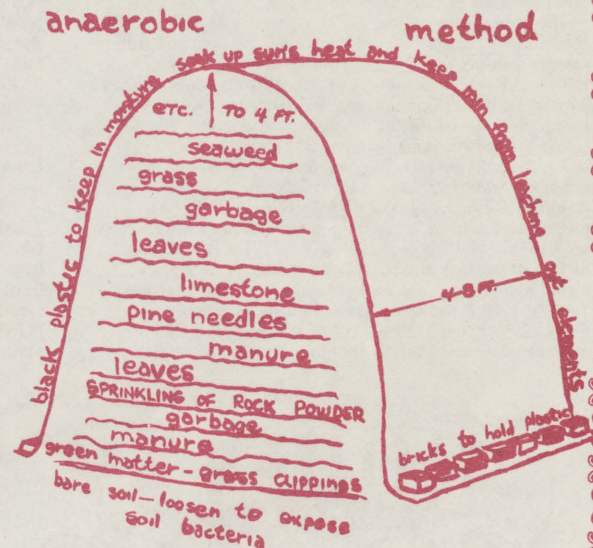 anaerobic method
black plastic to keep in moisture soak up sun's heat and keep rain from leaching out elements
ETC. TO 4 FT.
seaweed
grass
garbage
leaves
limestone
pine needles
manure
leaves
SPRINKLING OF ROCK POWDER
garbage
manure
green matter - grass clippings
bare soil - loosen to expose
soil bacteria
4-8 FT.
bricks to hold plastic